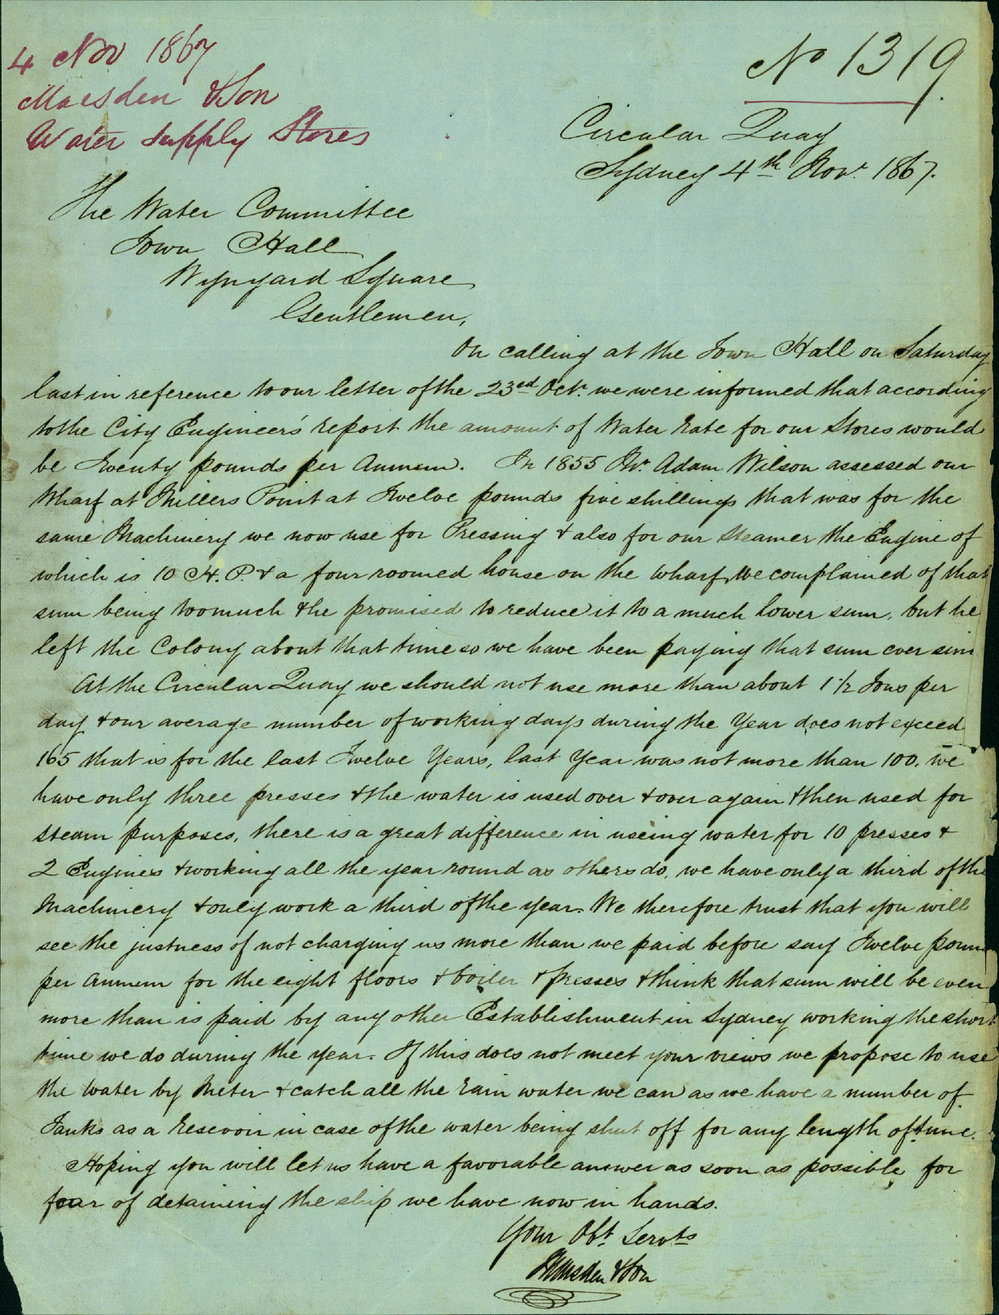 4 Nov 1867
Marsden & Son
Water Supply Stores
No 1319
Circular Quay
Sydney 4th Novr. 1867.
The Water Committee
Town Hall
Wynyard Square
Gentlemen,
On calling at the Town Hall on Saturday
last in reference to our letter of the 23rd Octr. we were informed that according
to the City Engineers' report the amount of Water Rate for our Stores would
be Twenty pounds per Annum. In 1855 Mr. Adam Wilson assessed our
Wharf at Millers Point at Twelve pounds five shillings that was for the
same Machinery we now use for Pressing & also for our Steamer the Engine of
which is 10 H. P. & a four roomed house on the Wharf, We complained of that
sum being too much & he promised to reduce it to a much lower sum, but he
left the Colony about that time so we have been paying that sum ever sin
At the Circular Quay we should not use more than about 1 1/2 Tons per
day & our average number of working days during the Year does not exceed
165 that is for the last Twelve Years, last Year was not more than 100. We
have only three presses & the water is used over & over again & then used for
steam purposes, there is a great difference in useing water for 10 presses &
2 Engines & working all the year round as others do, we have only a third of the
Machinery & only work a third of the year. We therefore trust that you will
see the justness of not charging us more than we paid before say Twelve poun
per Annum for the eight floors & boiler & presses & think that sum will be even
more than is paid by any other Establishment in Sydney working the short
time we do during the year. If this does not meet your views we propose to use
the Water by Meter & catch all the rain water we can as we have a number of
Tanks as a Resevoir in case of the water being shut off for any length of time.
Hoping you will let us have a favorable answer as soon as possible, for
fear of detaining the ship we have now in hands.
Your Obt. Servts
Marsden & Son